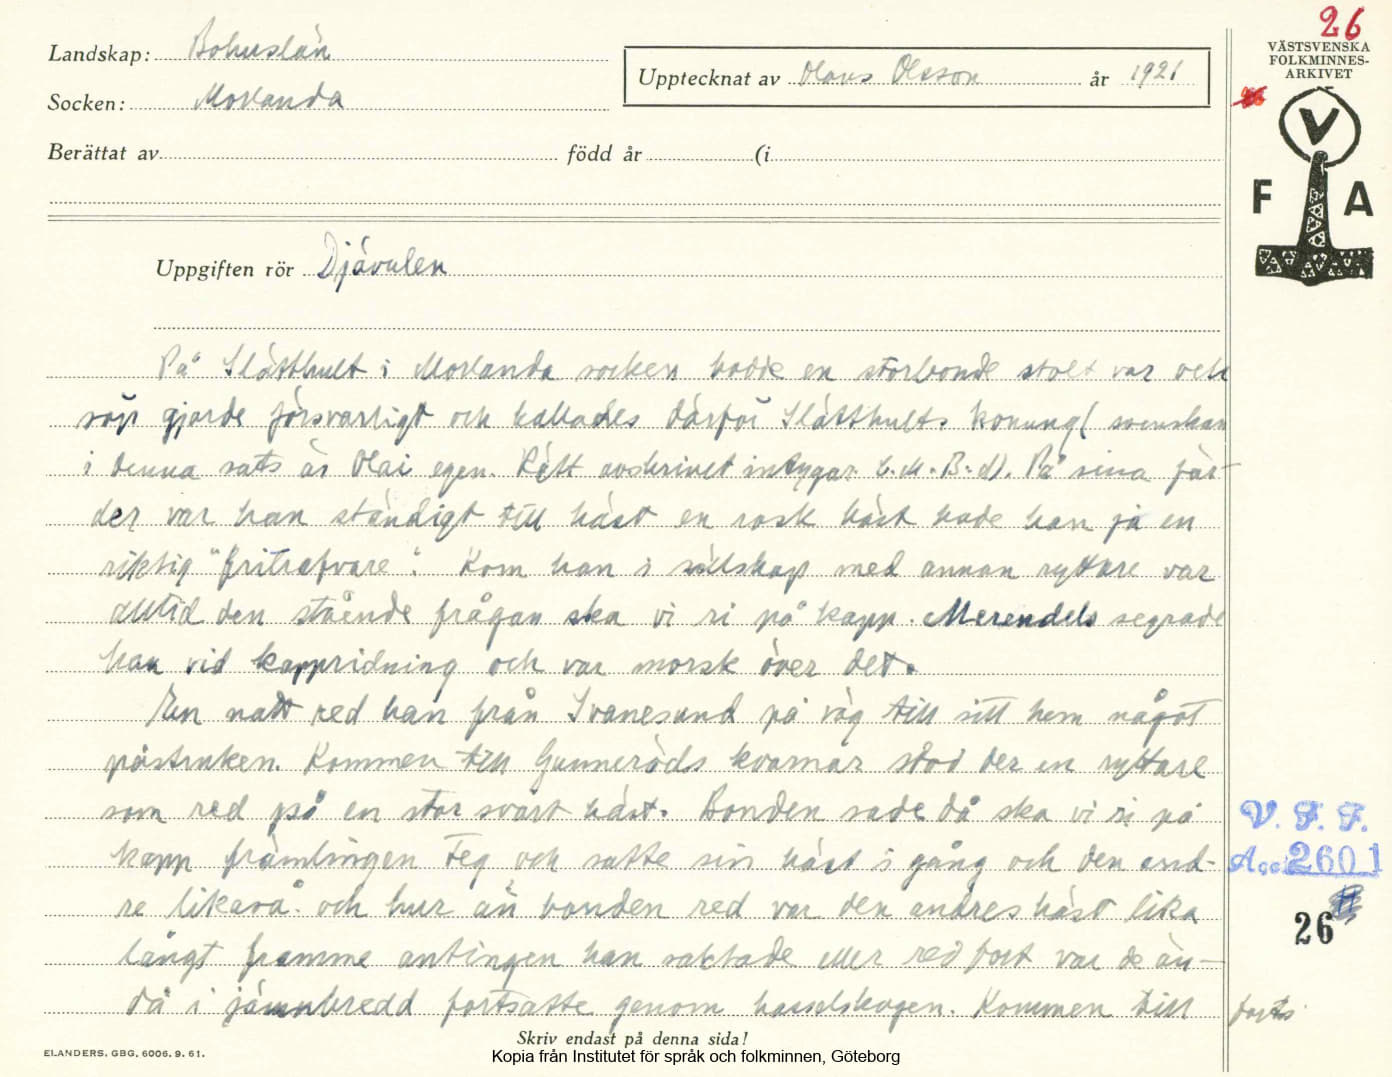 26
Landskap: Bohuslän
Socken: Morlanda
Upptecknat av Olaus Olsson år 1921
VÄSTSVENSKA
FOLKMINNES-
ARKIVET
V
F A
Berättat av född år (i
Uppgiften rör Djävulen
På Slätthult i Morlanda socken bodde en storbonde stolt var och
söp gjorde försvarligt och kallades därför Slätthults konung (svenskan
i denna sats är Olai egen. Rätt avskrivet intygar C.M.B:d). På sina fär-
der var han ständigt till häst en rask häst hade han ju en
riktig "fritrafvare". Kom han i sällskap med annan ryttare var
alltid den stående frågan ska vi ri på kapp. Merendels segrade
han vid kappridning och var morsk över det.
En natt red han från Svanesund på väg till sitt hem något
påstruken. Kommen till Gunneröds kvarnar stod der en ryttare
som red på en stor svart häst. Bonden sade då ska vi ri på
kapp främlingen teg och satte sin häst i gång och den and-
re likaså. och hur än bonden red var den andres häst lika
långt framme antingen han saktade eller red fort var de än-
då i jämnbredd fortsatte genom hasselskogen. Kommen till
forts.
V. F. F.
Acc. 2601
26
Skriv endast på denna sida!
ELANDERS, GBG, 6006. 9. 61.
Kopia från Institutet för språk och folkminnen, Göteborg